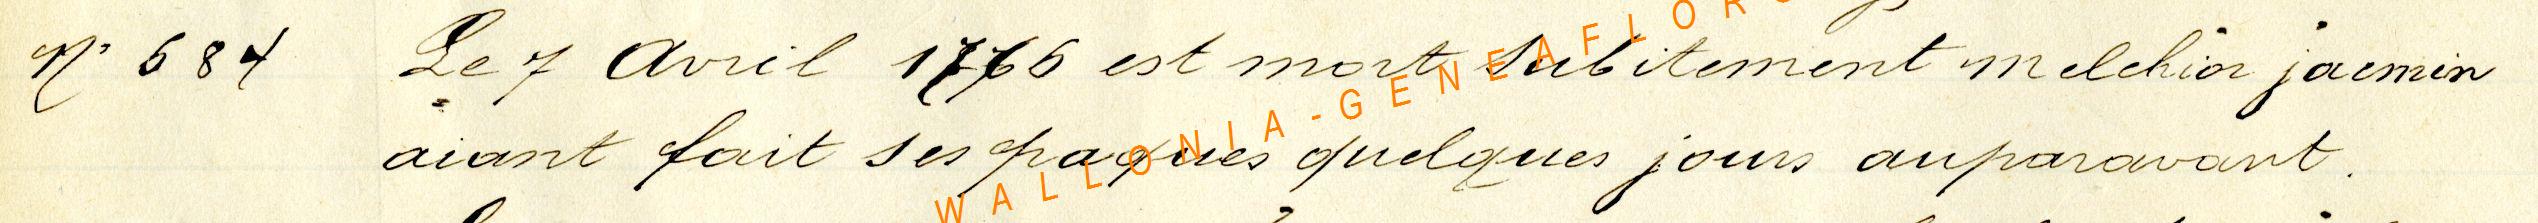 N° 684 Le 7 Avril 1766 est mort Subitement melchior jacmin
aiant fait ses paques quelques jours auparavant.
WALLONIA-GENEAFLOR